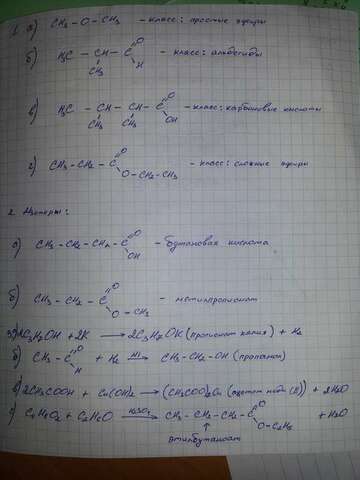 1. а) CH₃ – O – CH₃ – класс: простые эфиры
б) H₃C – CH – C =O – класс: альдегиды
CH₃ H
в) H₃C – CH – CH – C =O – класс: карбоновые кислоты
CH₃ CH₃ OH
г) CH₃ – CH₂ – C =O – класс: сложные эфиры
O – CH₂ – CH₃
2. Изомеры:
а) CH₃ – CH₂ – CH₂ – C =O – бутановая кислота
OH
б) CH₃ – CH₂ – C =O – метилпропионат
O – CH₃
2C₃H₇OH + 2K → 2C₃H₇OK (пропионат калия) + H₂
б) CH₃ – C =O + H₂ → CH₃ – CH₂ – OH (пропанол)
H
в) 2CH₃COOH + Cu(OH)₂ → (CH₃COO)₂Cu (ацетат меди (II)) + 2H₂O
+ C₂H₆O H₂SO₄ → CH₃ – CH₂ – CH₂ – C =O + H₂O
O – C₂H₅
этилбутаноат